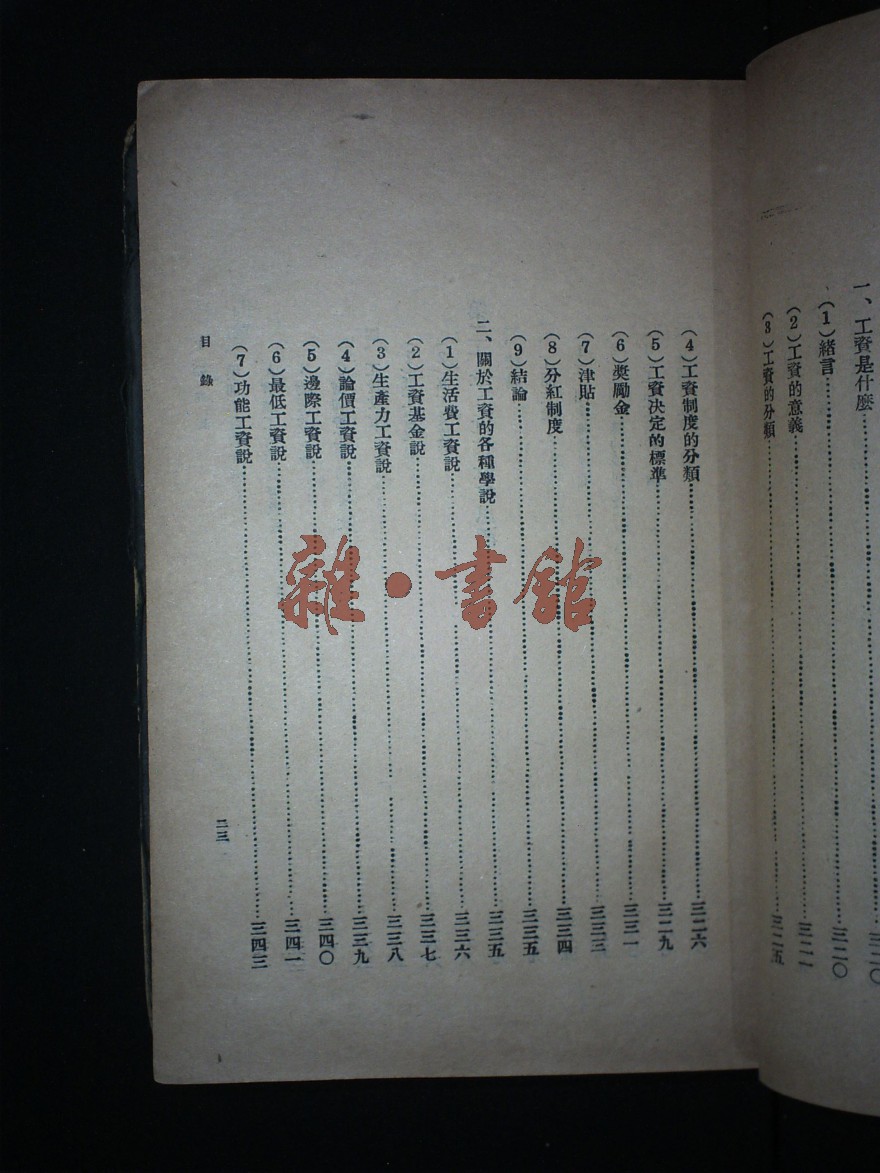 一、工資是什麼……三二〇
（1）緒言……三二〇
（2）工資的意義……三二一
（3）工資的分類……三二五
（4）工資制度的分類……三二六
（5）工資決定的標準……三二九
（6）獎勵金……三三一
（7）津貼……三三三
（8）分紅制度……三三四
（9）結論……三三五
二、關於工資的各種學說……三三五
（1）生活費工資說……三三六
（2）工資基金說……三三七
（3）生產力工資說……三三八
（4）論價工資說……三三九
（5）邊際工資說……三四〇
（6）最低工資說……三四二
（7）功能工資說……三四三
目錄
二三
雜·書館